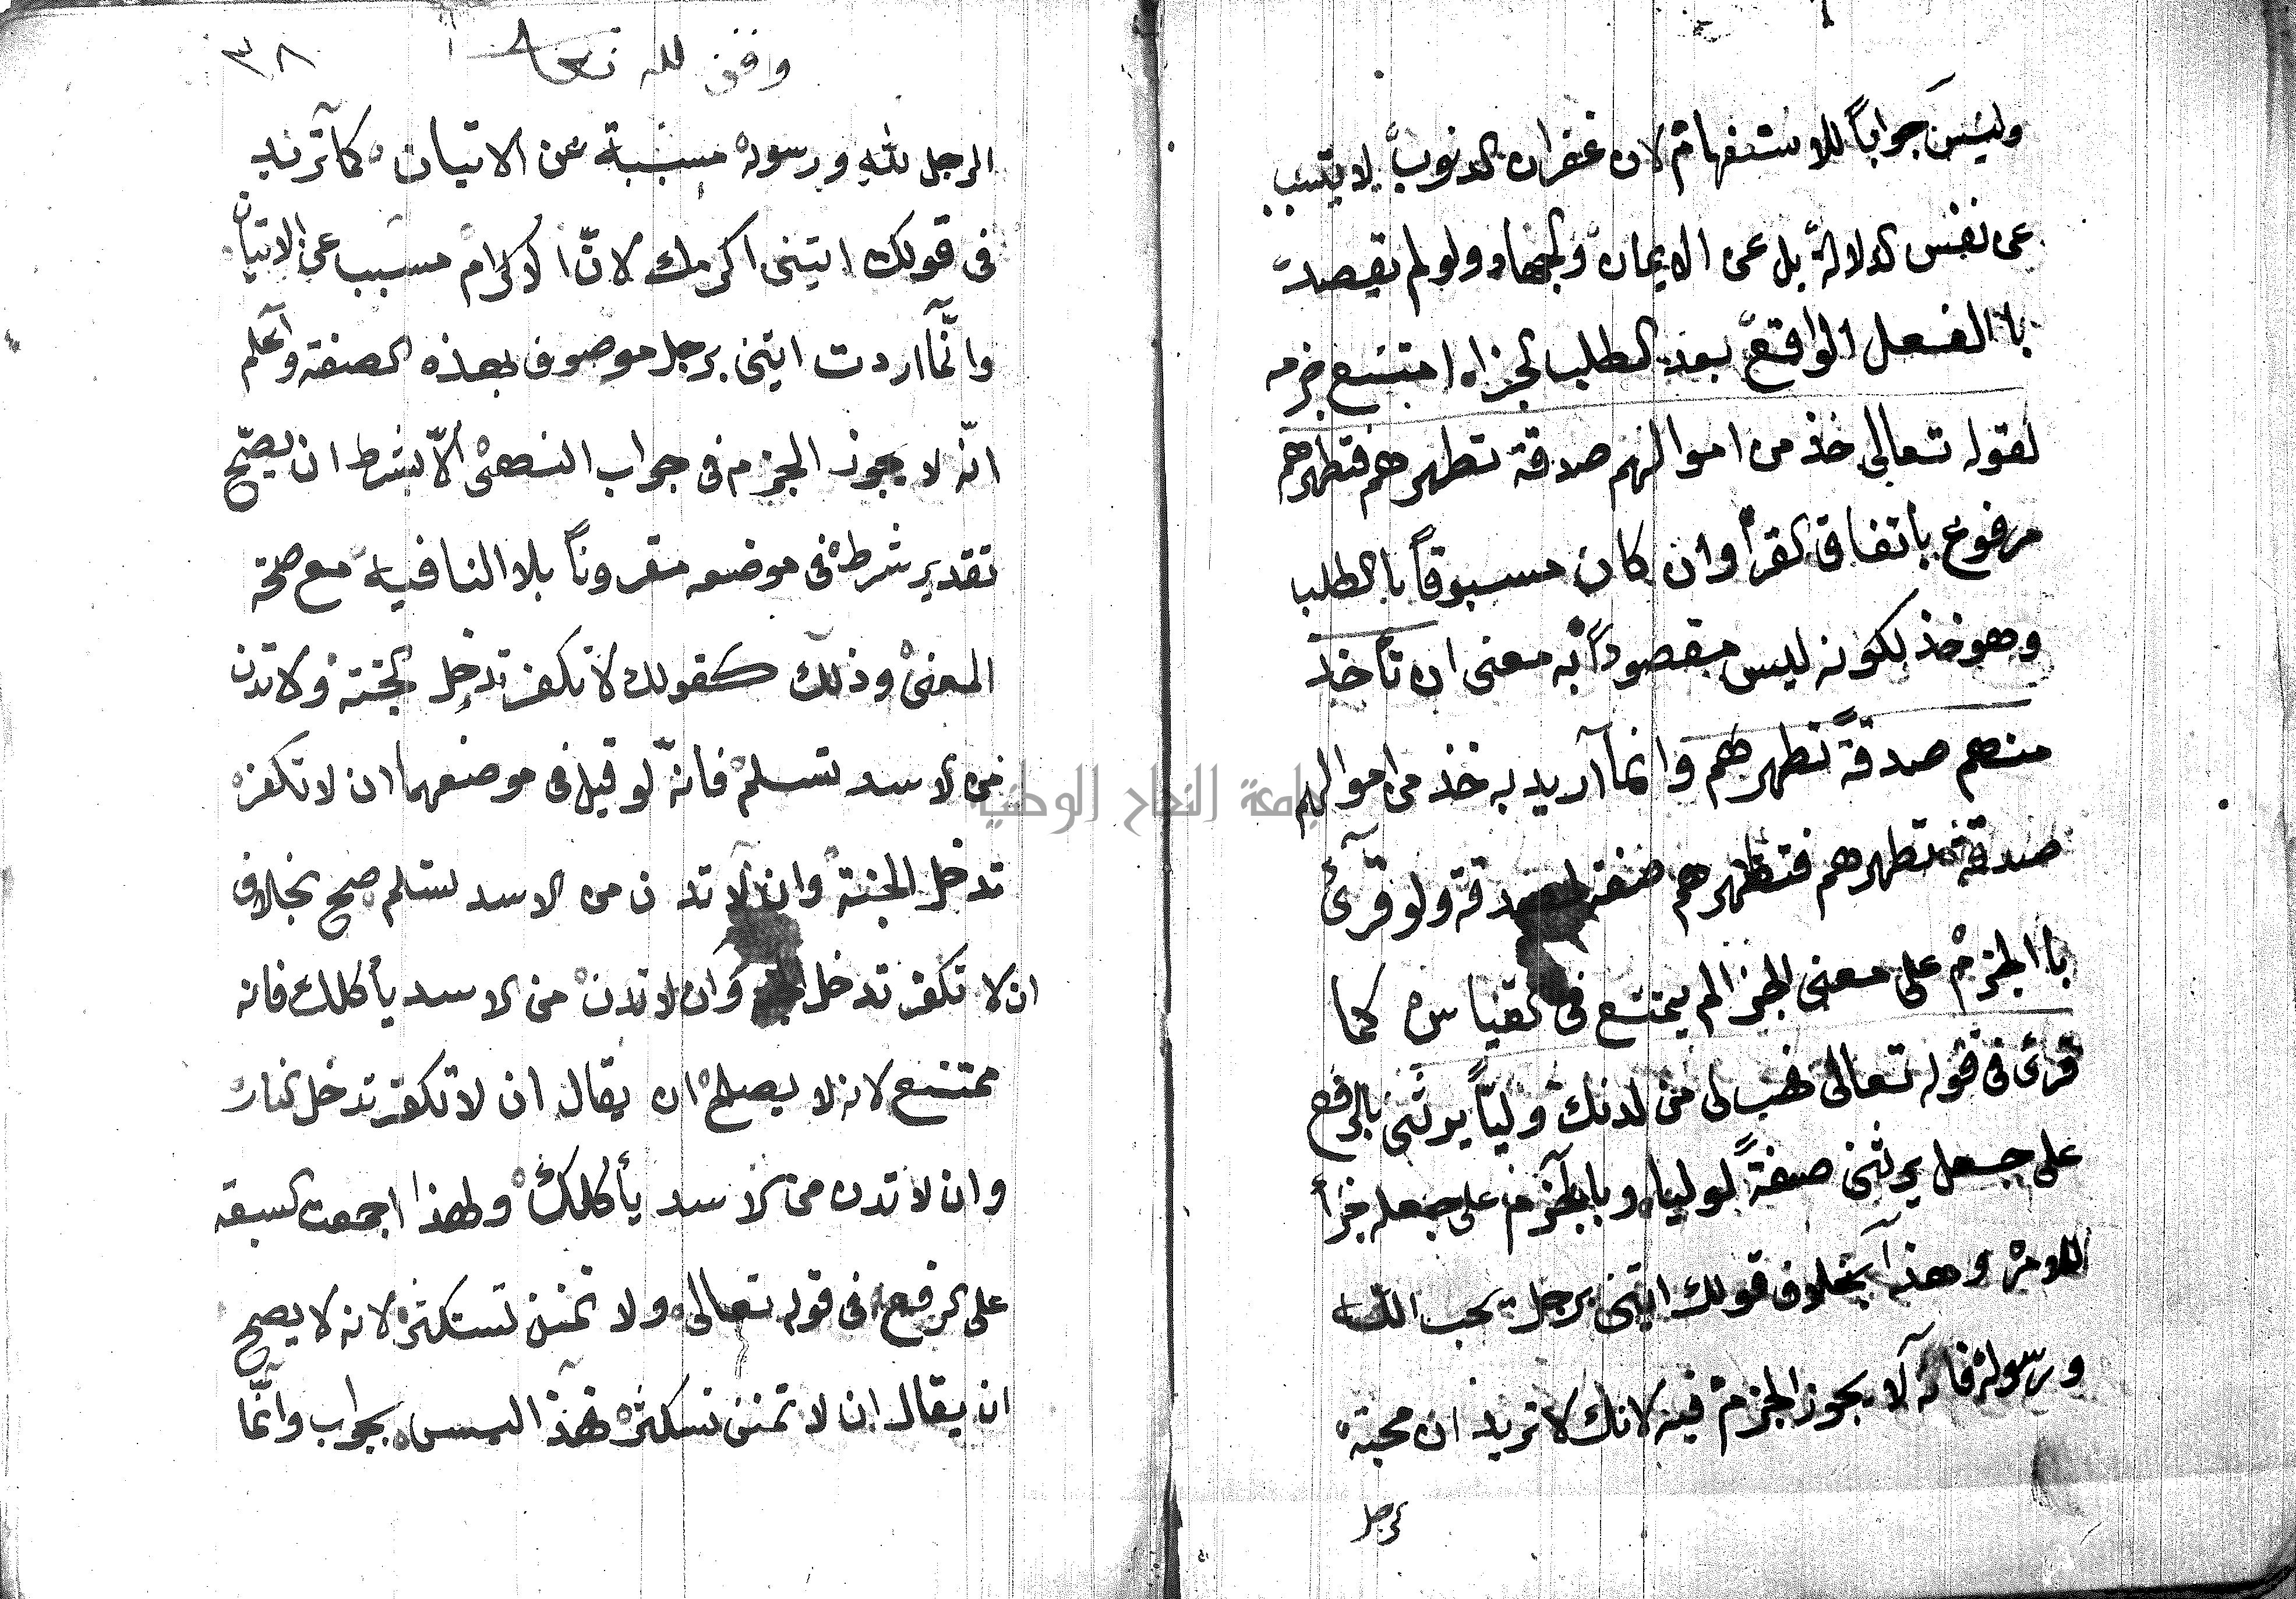 وليس جواباً للاستفهام لان غفران الذنوب لا يتسبب
عن نفس الدلالة بل عن الايمان والجهاد ولو لم يقصد
با الفعل الواقع بعد الطلب الجزاء امتنع جزمه
لقوله تعالى خذ من اموالهم صدقة تطهرهم فتطهرهم
مرفوع باتفاق القرأ وان كان مسبوقاً با الطلب
وهو خذ لكونه ليس مقصوداً به معنى ان تأخذ
منهم صدقةً تطهرهم وانما آريد به خذ من اموالهم
صدقة تطهرهم فتطهرهم صفة لصدقة ولو قرئ
با الجزم على معنى الجزا لم يمتنع في القياس كما
قرئ في قوله تعالى فهب لى من لدنك ولياً يرثني بالرفع
على جعل يرثني صفةً لوليا وبا الجزم على جعله جزأ
للامر وهذا بخلاف قولك ايتني برجل يحب الله
ورسوله فانه لا يجوز الجزم فيه لانك لا تريد ان محبة
الرجل
وقف لله تعالى
٣٨
الرجل لله ورسوله مسببة عن الاتيان كما تريد
في قولك ايتني اكرمك لانّ الاكرام مسبب عن الاتيان
وانّما اردت ايتني برجل موصوف بهذه الصفة وآعلم
انّه لا يجوز الجزم في جواب النهى الّا بشرط ان يصّح
تقدير شرط في موضعه مقروناً بلا النافية مع صحة
المعنى وذلك كقولك لا تكفر تدخل الجنة ولا تدن
من الاسد تسلم فانّه لو قيل في موضعهما ان لا تكفر
تدخل الجنة وان لا تدن من الاسد تسلم صح بخلاف
ان لا تكفر تدخل وان لا تدن من الاسد يأكلك فانه
ممتنع لانه لا يصلح ان يقال ان لا تكفر تدخل النار
وان لا تدن من الاسد يأكلك ولهذا اجمعت السبعة
على الرفع في قوله تعالى ولا تمنن تستكثر لانه لا يصح
ان يقال ان لا تمنن تسكثر فهذا ليس بجواب وانّما
جامعة النجاح الوطنية